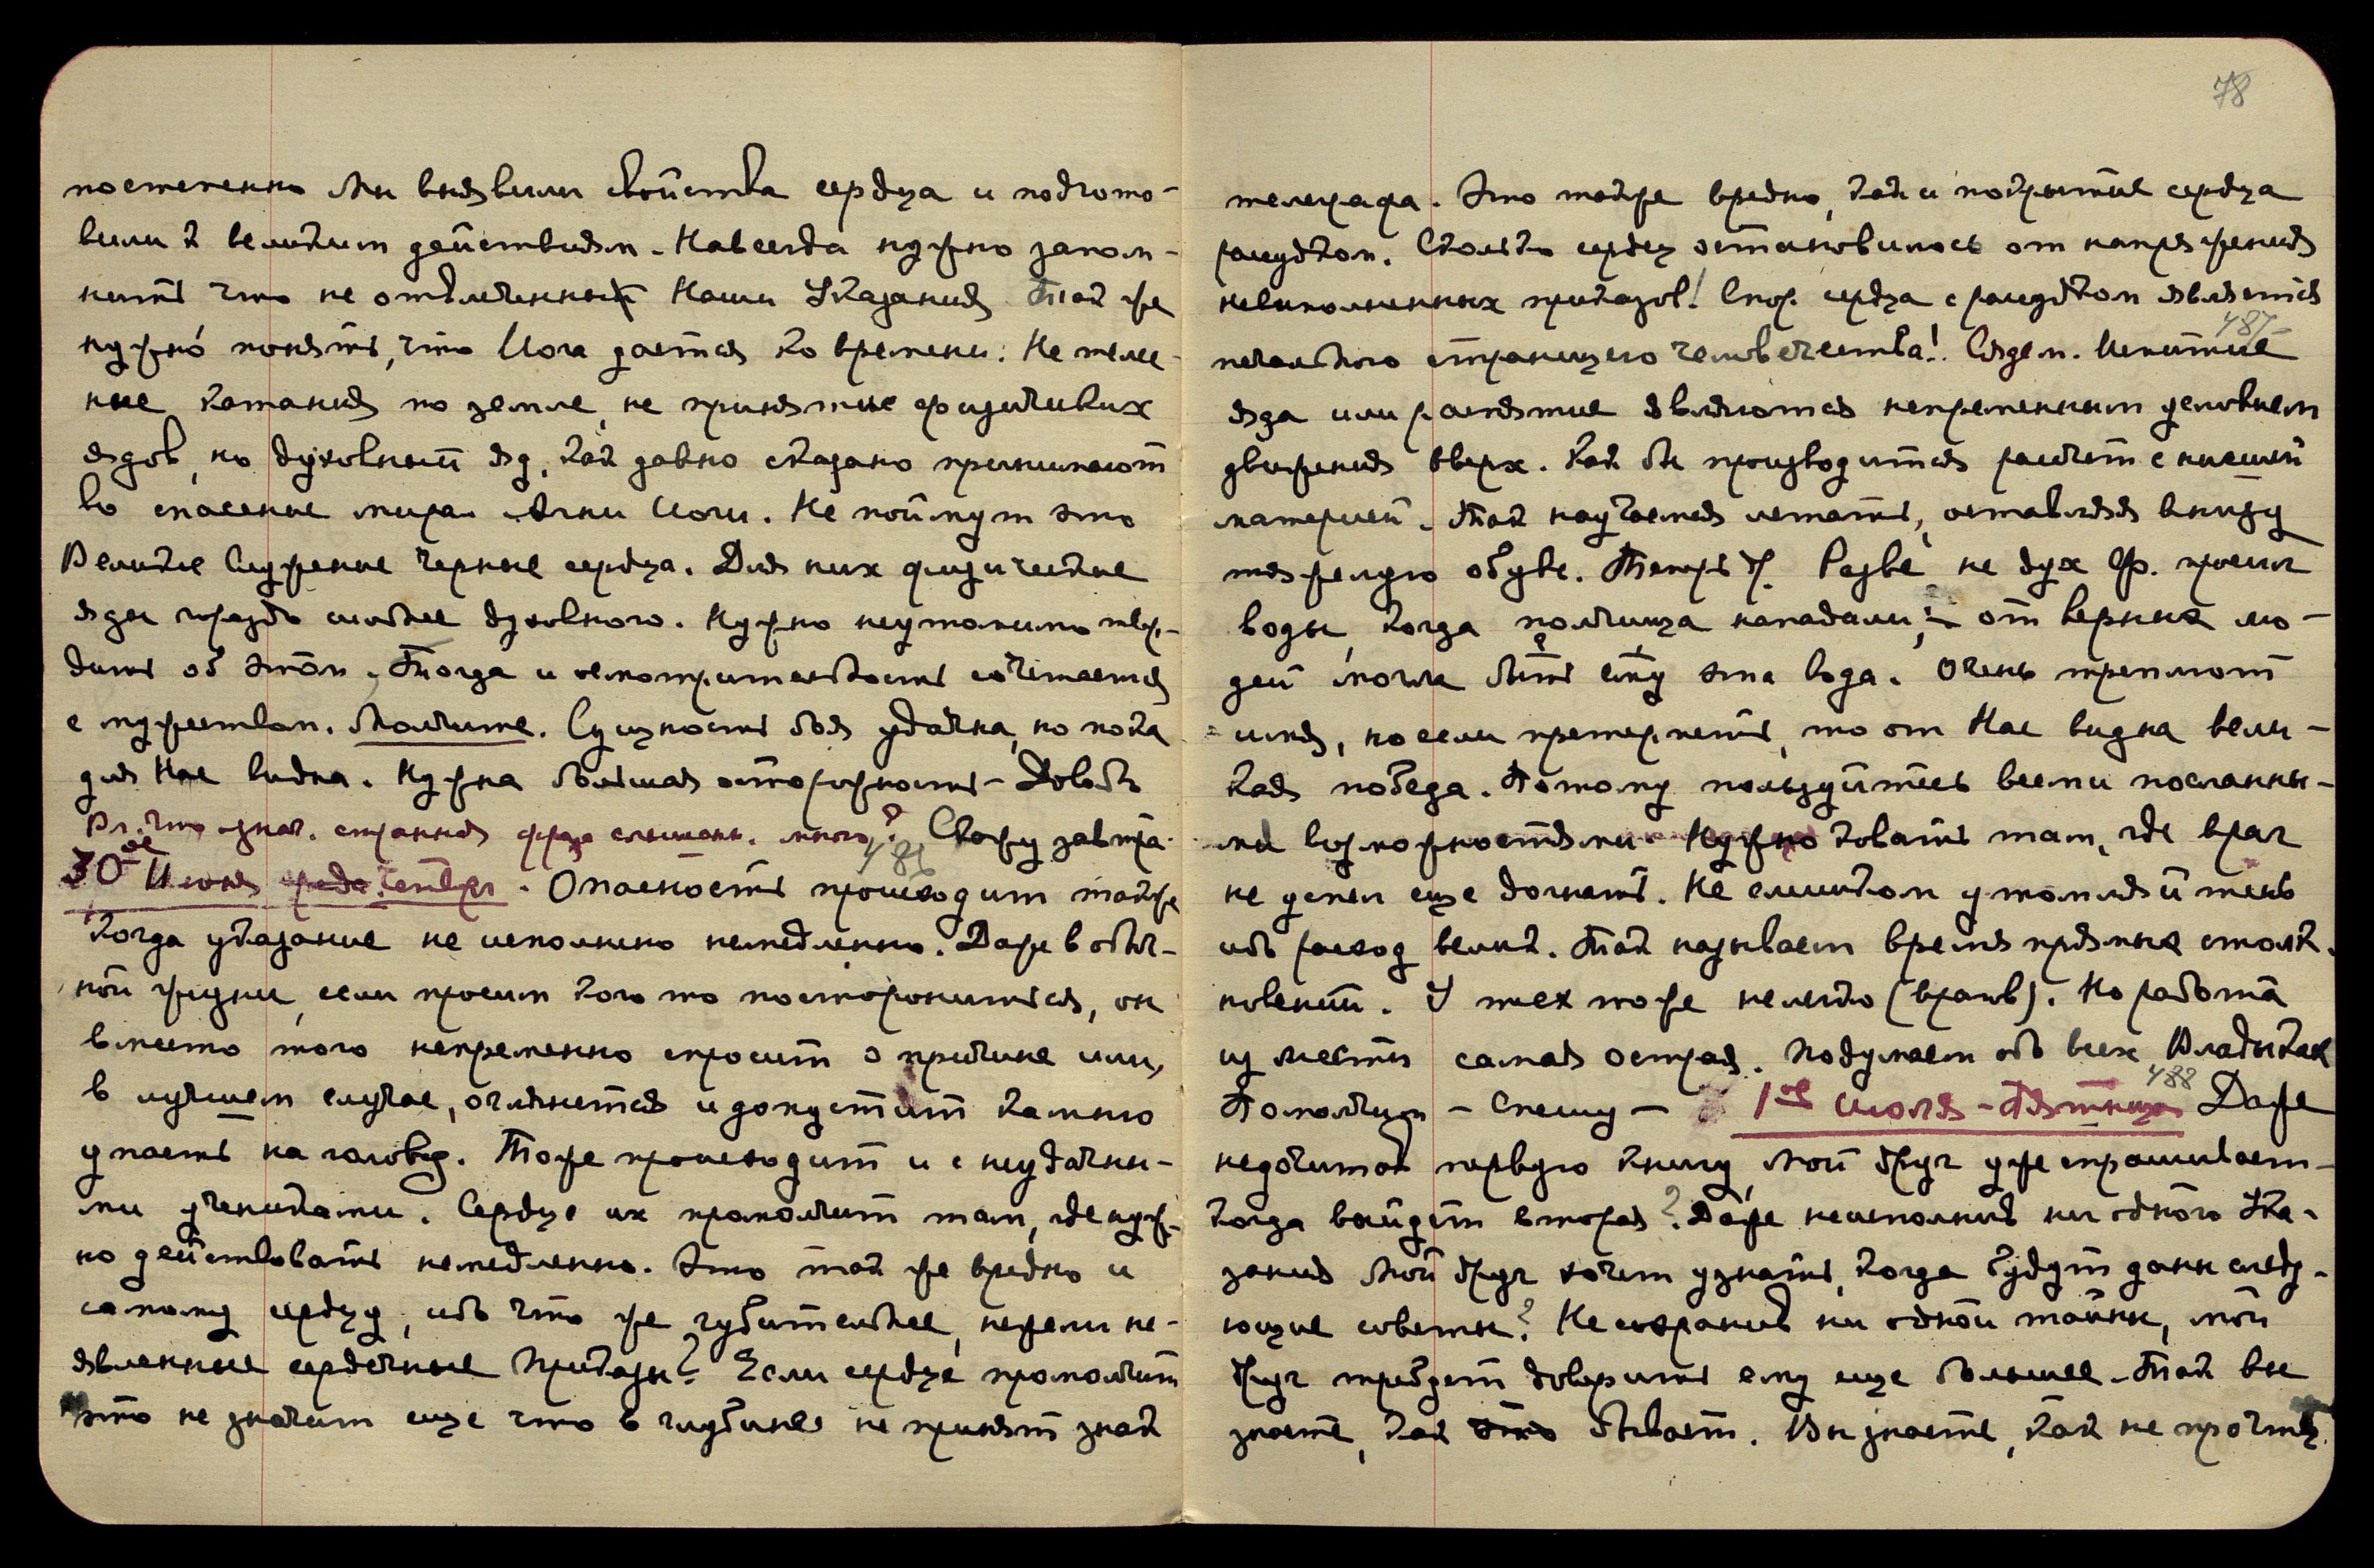 постепенно Мы выявили свойства сердца и подгото-
вили к великим действиям. Навсегда нужно запом-
нить что не отвлеченны Наши Указания Так же
нужно понять, что Йога дается ко времени. Не телес-
ные катания по земле, не принятие физических
ядов, но духовный яд, как давно сказано принимают
во спасение мира Агни Йоги. Не поймут это
Великое Служение черные сердца. Для них физические
яды гораздо слабее духовного. Нужно неутомимо твер-
дить об этом, Тогда и осмотрительность сочетается
с мужеством. Молчите. Сущность боя удачна, но пока
для Нас видна. Нужна большая осторожность – Довольно
Вл. что знач. странная фраза слышанн. мною? Скажу завтра.
30ое Июня среда. Четверг. 486 Опасность происходит также
когда указание не исполнено немедленно. Даже в обыч-
ной жизни, если просим кого то посторониться, он
вместо того непременно спросит о причине или,
в лучшем случае, оглянется и допустит камню
упасть на голову. Тоже происходит и с неудачны-
ми учениками. Сердце их промолчит там, где нуж-
но действовать немедленно. Это так же вредно и
самому сердцу, ибо что же губительнее, нежели не-
явленные сердечные Приказы? Если сердце промолчит
это не значит еще что в глубине не принят знак
78
телеграфа. Это также вредно, как и покрытие сердца
рассудком. Сколько сердец остановилось от напряжения
невыполненных приказов! Спор сердца с рассудком является
печального страницею человечества! Сядем. 487- Испитие
яда или распятие являются непременным условием
движения вверх. Как бы производится расчет с низшей
материей. Так научаемся летать, оставляя внизу
тяжелую обувь. Теперь др. Разве не дух Ф. просил
воды, когда полчища нападали, – от верных лю-
дей могла быть ему эта вода. Очень треплют
имя, но если претерпеть, то от Нас видна вели-
кая победа. Потому пользуйтесь всеми посланны-
ми возможностями Нужно ковать там, где враг
не успел еще догнать. Не слишком утомляйтесь
ибо расход велик. Так называем время прямых столк-
новений. У тех тоже нелегко (врагов). Но работа
из мести самая острая. Подумаем об всех Владыках
Помолчим – Спешу – 1ое июля – Пятница 488 Даже
недочитав первую книгу, Мой друг уже спрашивает –
когда выйдет вторая? Даже неисполнив ни одного Ука-
зания Мой друг хочет узнать, когда будут даны следу-
ющие советы? Не сохранив ни одной тайны, мой
друг требует доверить ему еще большее. Так вы
знаете, как это бывает. Вы знаете, как не прочтя